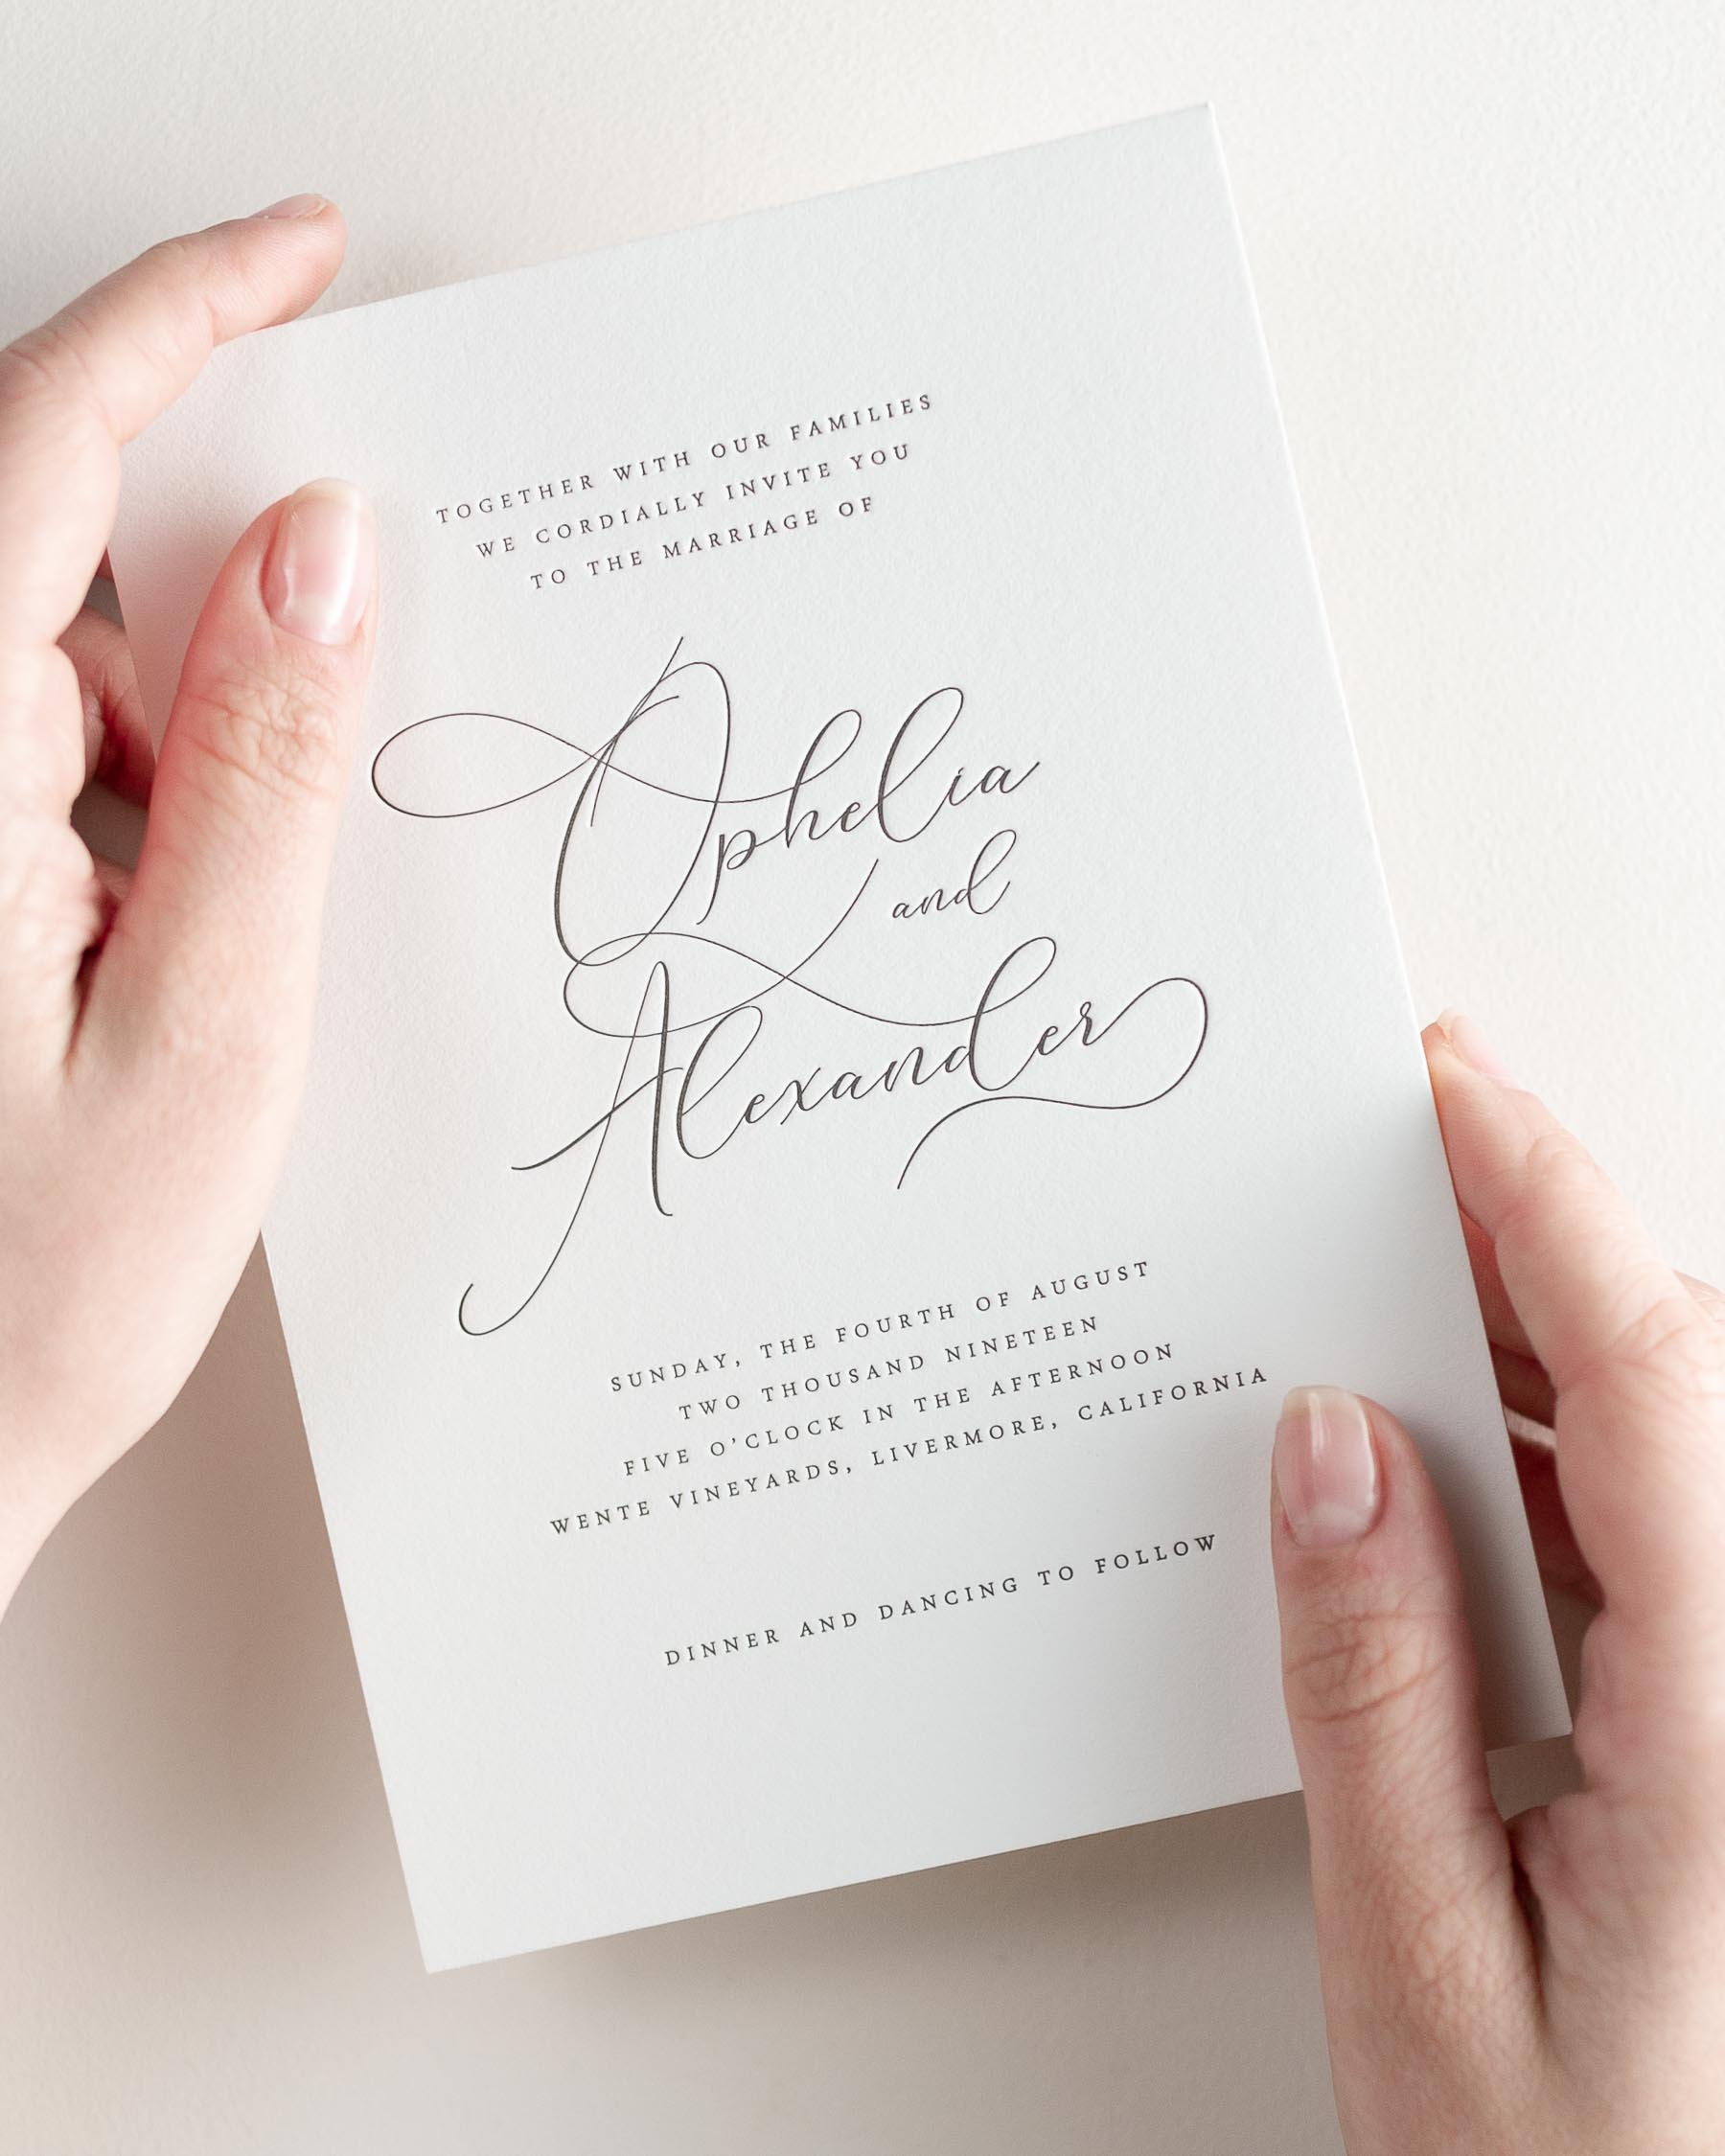 TOGETHER WITH OUR FAMILIES
WE CORDIALLY INVITE YOU
TO THE MARRIAGE OF
Ophelia
and
Alexander
SUNDAY, THE FOURTH OF AUGUST
TWO THOUSAND NINETEEN
FIVE O’CLOCK IN THE AFTERNOON
WENTE VINEYARDS, LIVERMORE, CALIFORNIA
DINNER AND DANCING TO FOLLOW